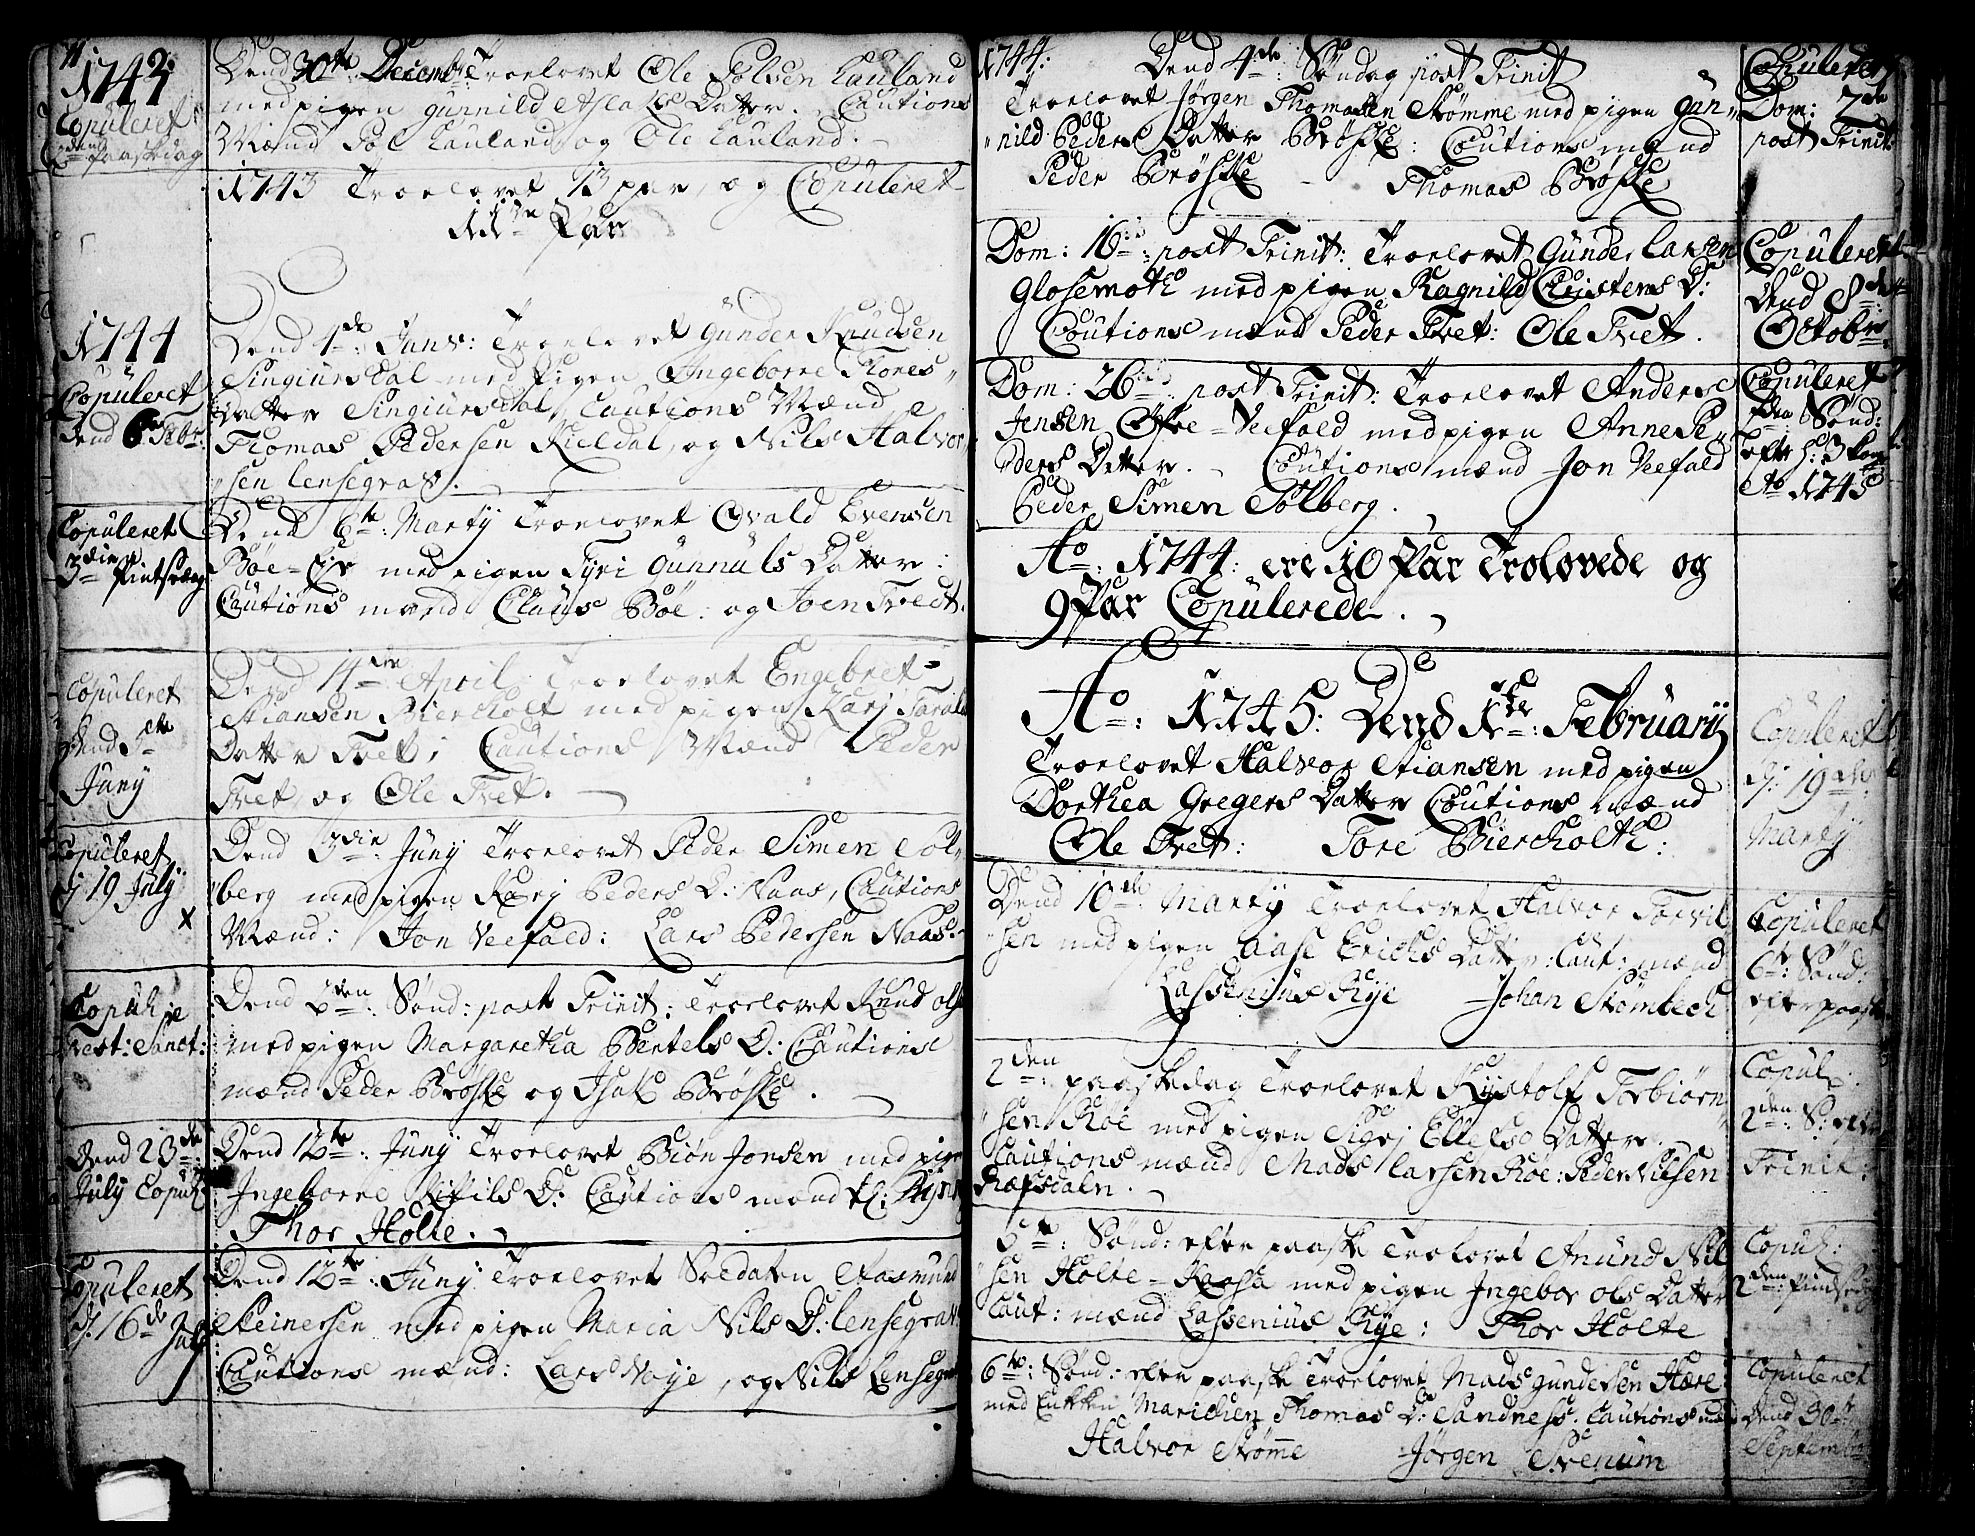 1743
Copuleret
2den Paaskedag
Dend 30te Decembr: Troelovet Ole Polsen Lauland
med pigen Gunnild Aslaks Datter. Cautions
Mænd Pol Lauland og Ole Lauland.
1743 Troelovet 13 par, og Copuleret
11 Par
1744
Copuleret
Dend 6 Febr:
Dend 1de Janv: Troelovet Gunder Knudsen
Singiursdal med Pigen Ingeborre Tores
Datter Singiursdal, Cautions Mænd
Thomas Pedersen Kieldal, og Nils Halvor
sen Lensegrav.
Copuleret
3die Pintsedag
Dend 6te Martij Troelovet Evald Evensen
Bøe-Eje med pigen Tyri Gunnuls Datter:
Cautions mænd Claus Bøe: og Joen Tvedt.
Copuleret
Dend 5te
Junij
Dend 14de April Troelovet Engebret
Stiansen Biercholt med pigen Karj Tarals
Datter Tvet; Cautions Mænd Peder
Tvet, og Ole Tvet.
Copuleret
d 19 Julij
X
Dend 3die Junij Troelovet Peder Simen Sol
berg med pigen Karj Peders D: Naas, Cautions
Mænd: Jon Veefald: Lars Pedersen Naas.
Copul: in
Fest: Sanct:
Dend Sønd: post Trinit: Troelovet Knud Ols
med pigen Margaretha Bertels D: Cautions
mænd Peder Brøske og Isak Brøske.
Dend 23de
Julij Copul:
Dend 12te Junij Troelovet Biøn Jonsen med pigen
Ingeborre Kitils D: Cautions mænd
Thor Holte.
Copuleret
d. 16de Julij
Dend 12te: Junij Troelovet Soldaten Aasmund
Steinersen med pigen Maria Nils D: Lensegrav.
Cautions mænd: Lars Naje, og Nils Lensegrav
1744: Dend 4de: Søndag post Trinit
Troelovet Jørgen Thomasen Strømme med pigen Gun
nild Peders Datter Brøske: Cautions mænd
Peder Brøske - Thomas Brøske
Copuleret
Dom: 7de
post Trinit:
Dom: 16de: post Trinit: Troelovet Gunder Larsen
Glosemoth med pigen Ragnild Christens D:
Cautions mænd Peder Tvet: Ole Tvet.
Copuleret
Dend 8de
Octobr:
Dom: 26de: post Trinit: Troelovet Anders
Jensen Øfre-Veefald med pigen Anne Pe
ders Datter. Cautions mænd Jon Veefald
Peder Simen Solberg.
Copuleret
Sønd:
eft: h: 3 Kong
Ao 1745
Ao: 1744: ere 10 Par Trolovede og
9 Par Copulerede.
Ao: 1745: Dend 1ste: Februarij
Troelovet Halvor Stiansen med pigen
Dorthea Gregers Datter Cautions mænd
Ole Tvet: Tore Biercholth:
Copuleret
d: 19de
Martij
Dend 10de: Martij Troelovet Halvor Torvil
sen med pigen Aase Erichs Datter: Caut: mænd
Lassenius Rye Johan Strømbech
Copuleret
6te: Sønd:
efter paaske
2den: paaskedag Troelovet Kijstolf Torbiørn
sen Røe med pigen Sigrj Ellefs Datter.
Cautions mænd Mads Larsen Røe: Peder Nielsen
Præsdalen.
Copul:
2den: S: efter
Trinit:
5te: Sønd: efter paaske Trolovet Anund Nil
sen Holte-Raasa med pigen Ingebor Ols Datter
Caut: mænd Lassenius Rye: Thor Holte
Copul:
2den: Pindsedag
6te: Sønd: efter paaske Troelovet Mads Gundersen Hære
med Enkken Marichen Thomas D: Sandness. Cautions mænd
Halvor Strømme Jørgen Svenum
Copuleret
Dend 30te
Septembr